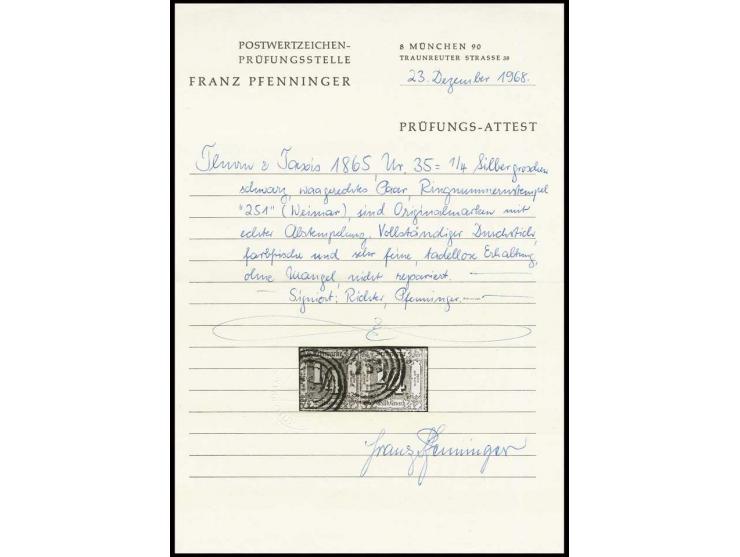 POSTWERTZEICHEN-
PRÜFUNGSSTELLE
FRANZ PFENNINGER
8 MÜNCHEN 90
TRAUNREUTER STRASSE 38
23. Dezember 1968.
PRÜFUNGS-ATTEST
Thurn & Taxis 1865, Nr. 35 = 1/4 Silbergroschen
schwarz, waagerechtes Paar, Ringnummernstempel
"251" (Weimar), sind Originalmarken mit
echter Abstempelung, Vollständiger Durchstich,
farbfrische und sehr feine, tadellose Erhaltung,
ohne Mangel, nicht repariert.
Signiert: Richter, Pfenninger.
Franz Pfenninger